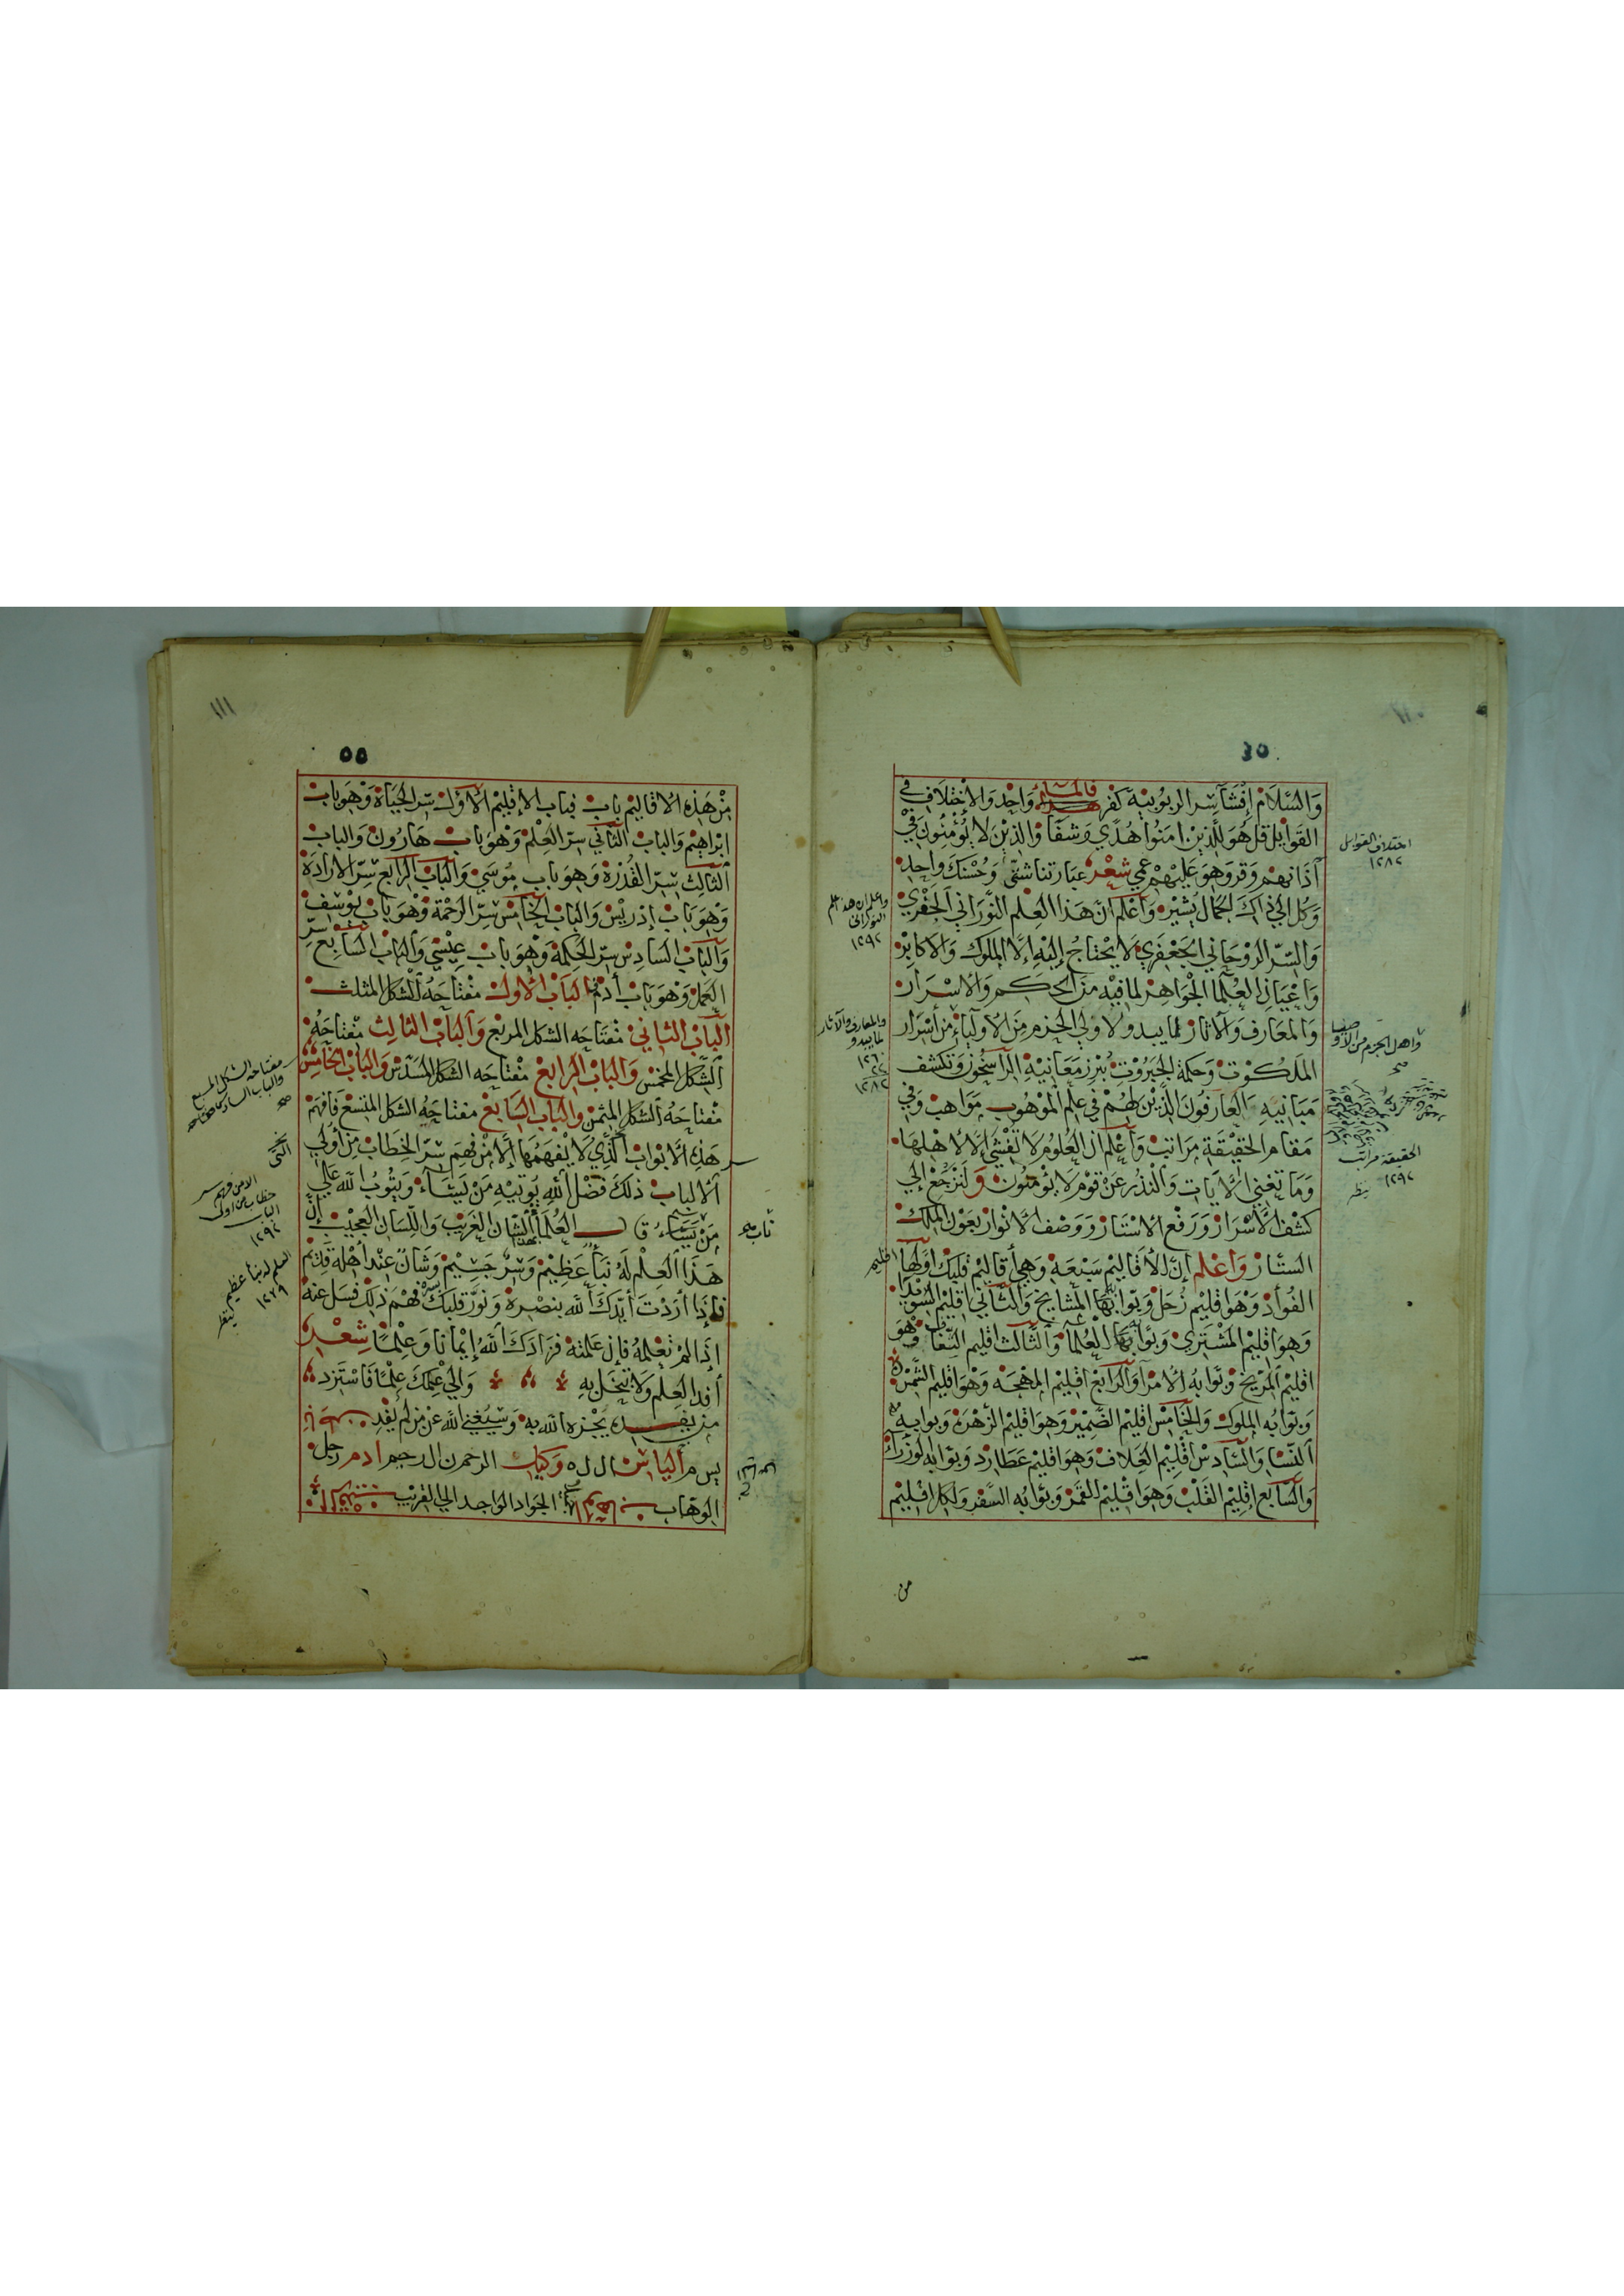 ٥٤
وَالسَّلَام إفشآ سِر الربُوبيَّة كفر فالمسلك وَاحِد وَالاختلاف في
القوَابل قل هُوَ للَّذِين امَنوا هُدًي وَشفَا وَالذِيْنَ لا يُؤمِنُون فِي
آذَانِهِم وَقر وَهوَ عَليْهمْ عَمي شِعْر عبَارتنا شتَّى وَحُسْنك وَاحِد
وَكل الي ذاك الجمال يُشير وَاعْلم أن هَذا العِلم النّوراني الجَفْري
وَالسّر الرّوحَاني الجَعْفَري لا يَحْتاجُ إليْهِ إلا الملوك وَالاكابر
وَاعْيَان العُلَمَا الجوَاهِر لمَا فيْه منَ الحكم وَالاسْرَار
وَالمعَارف وَالآثار لما يبدو لاولي الحزم مِنَ الاوليَاء من أسْرَار
الملكوْت وَحكمة الجبَرُوت يُبْرز مَعَانيْهِ الرَّاسخُون وَتكشف
مَبَانيْهِ العَارفُون الذِيْنَ لهُمْ في عِلم الموْهوب مَوَاهب وَفي
مَقام الحقيْقة مرَاتب وَاعْلم ان العُلوم لا تُفشَي إلا لأهْلهَا
وَمَا تغني الآيَات وَالنُّذُر عَنْ قوْم لا يُؤمنُون وَلنَرْجعْ إلي
كشْف الأسْرَار وَرَفع الاسْتَار وَوَصْف الأنوَار بعَوْن الملك
السَّتَّار وَاعْلم إنَّ الأقاليْم سَبْعَة وَهِي أقاليْم قلبك أوّلهَا اقليم
الفُؤاد وَهوَ اقليْم زُحَل وَبَوّابهَا المشايخ وَالثَّاني اقليْم السّوَيْدَا
وَهوَ اقليْم المشتري وَبَوّابهَا العُلمَا وَالثَّالث اقليم الشغَاف وَهوَ
اقليْم المرِّيخ وَبَوّابهُ الأمرَا وَالرّابع اقليْم المهْجَة وَهوَ اقليْم الشَّمْس
وَبَوّابه الملوك وَالخامِس اقليْم الضَّميْر وَهوَ اقليْم الزّهْرَة وَبوابه
النّسَا وَالسَّادس اقليْم الغِلاف وَهوَ اقليْم عطارد وَبَوّابه الوزرَاء
وَالسَّابع اقليْم القلْب وَهوَ اقليْم القمَر وَبَوّابه السّفر وَلكل اقليْم
من
اختلاف القوابل
١٢٨٢
واعلم ان هذا العلم
النوراني
١٢٩٢
والمعارف والآثار
لما يبدو
الحقيقة مراتب
١٢٩٢
ينظر
١١١
٥٥
مِنْ هَذِه الاقاليْم بَاب فبَاب الإقليْم الأوّل سِرّ الحيَاة وَهوَ بَاب
ابْرَاهِيْم وَالبَاب الثَّاني سِرّ العِلْم وَهوَ بَاب هَارُون وَالباب
الثَّالِث سِرّ القُدْرَة وَهوَ باب مُوسَي وَالبَاب الرّابع سِرّ الارَادَة
وَهوَ بَاب إدْريْس وَالبَاب الخَامس سِرّ الرحْمَة وَهوَ بَاب يُوْسُف
وَالبَاب السَّادِس سِرّ الحِكمَة وَهوَ بَاب عِيْسَي وَالبَاب السَّابع سِرّ
العَمَل وَهوَ بَاب أدَم البَاب الأوّل مفْتَاحَهُ الشكل المثلث
البَاب الثَّاني مفتَاحَه الشكل المربَّع وَالبَاب الثالِث مِفتَاحَهُ
الشَّكل المخمّس وَالبَاب الرَّابع مفْتَاحَه الشكل المسَدَّس وَالبَاب الخَامِس
مفْتاحَهُ الشكل المثمّن وَالبَاب السَّابع مفتَاحَهُ الشكل المتسّع فَافهَمْ
هَذِه الأبوَاب الذي لا يفْهَمُهَا إلا مَنْ فهمَ سِرّ الخِطَاب مِن أولي
الألباب ذلكَ فَضْل الله يُوتيْهِ مَنْ يَشَآء وَيَتُوبُ الله عَلي
مَنْ يَشَاءُ قال بعض العُلمَا لهذا الشان الغَريْب وَاللسَان العَجيْب إنّ
هَذا العِلْم لهُ نبَأ عَظِيْم وَسِرّ جَسِيْم وَشَان عِنْد اهْله قديْم
فإذَا أرَدْتَ أيّدَكَ الله بنصْره وَنوّرَ قلبَكَ فهْمَ ذلكَ فَسَل عَنهُ
إذَا لمْ تَعْلمْهُ فإن عَلمْتَهُ فزَادَكَ الله إيْمَانًا وَعِلمًا شِعْر
أفد العِلم وَلا تبْخَل بهِ وَالي عِلمِكَ عِلمًا فَاسْتَزد
من يفده يُجْزه الله به وَسيُغني الله عَن من لم يفد
ب س م الياس ال ل ه وكتاب الرحمن الرحيم ادم رجل
الوهّاب الجوَاد الوَاجد الحي القريْب
مفتاحه الشكل المسبع
والباب السادس مفتاحه
صح
الا من فهم سر
خطاب من اولى
الباب
١٢٩٢
العلم له نبأ عظيم
١٢٧٩
ينظر